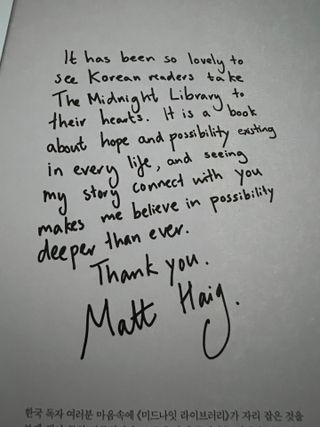 It has been so lovely to
see Korean readers take
The Midnight Library to
their hearts. It is a book
about hope and possibility existing
in every life, and seeing
my story connect with you
makes me believe in possibility
deeper than ever.
Thank you.
Matt Haig.
한국 독자 여러분 마음속에 《미드나잇 라이브러리》가 자리 잡은 것을